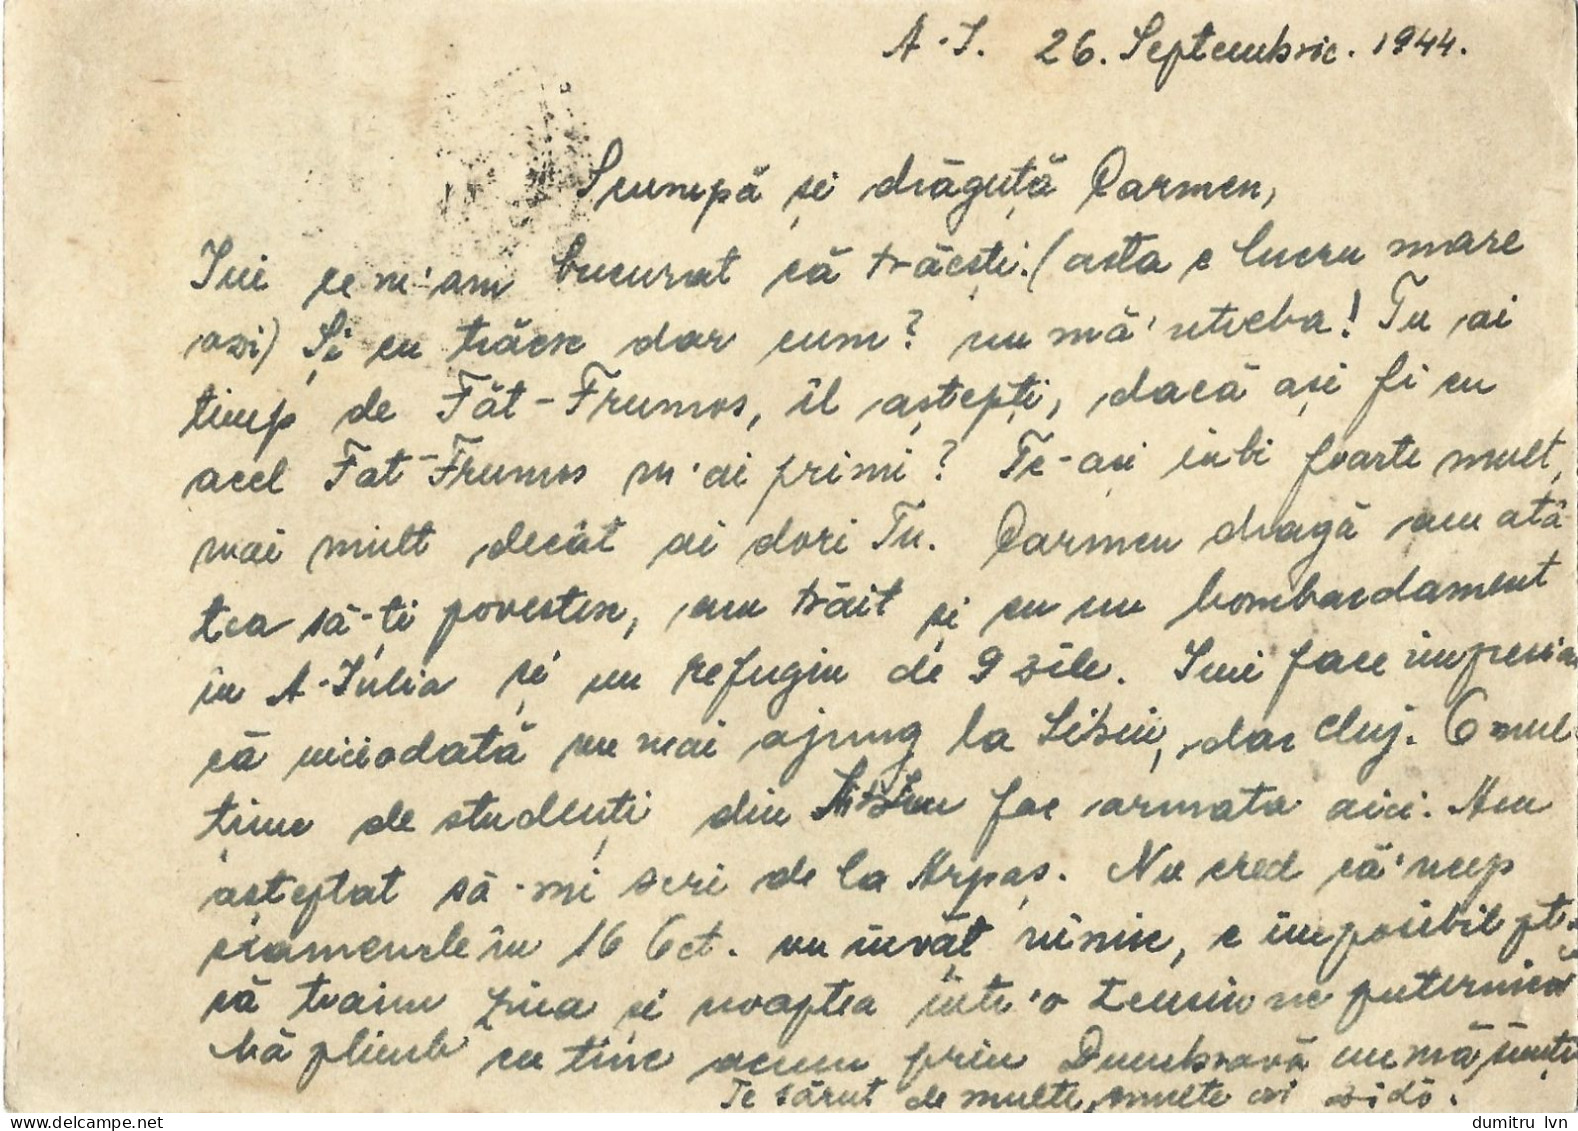 A.I. 26. Septembrie. 1944.
Scumpă și drăguță Carmen,
Îmi ce m'am bucurat că trăești. (asta e lucru mare
azi) Și eu trăesc dar cum? nu mă'ntreba! Tu ai
timp de Făt-Frumos, îl aștepți, dacă ași fi eu
acel Fat-Frumos m'ai primi? Te-ași iubi foarte mult,
mai mult decât ai dori Tu. Carmen dragă am atâ-
tea să-ți povestesc, am trăit și eu un bombardament
în A-Iulia și un refugiu de 9 zile. Îmi face impresia
că niciodată nu mai ajung la Sibiu, dar Cluj. O mul-
țime de studenți din Sibiu fac armata aici. Am
așteptat să-mi scri de la Arpaș. Nu cred că'ncep
examenele în 16 Oct. nu învăț nimic, e imposibil pt.
că traim ziua și noaptea într'o tensiune puternică
Mă plimb cu tine acum prin Dumbravă nu mă simți
Te sărut de multe, multe ori